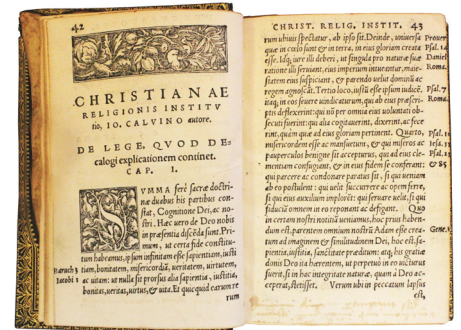 42
CHRISTIANAE
RELIGIONIS INSTITV
tio, IO. CALVINO autore.
DE LEGE, QVOD De-
calogi explicationem continet.
CAP. I.
SVMMA ferè sacræ doctri-
næ duabus his partibus con-
stat, Cognitione Dei, ac no-
stri. Hæc uero de Deo nobis
in præsentia discẽda sunt. Pri-
mum, ut certa fide constitu-
tum habeamus, ipsum infinitam esse sapientiam, iusti
Baruch 3 tiam, bonitatem, misericordiã, ueritatem, uirtutem,
Iacobi 1 ac uitam: ut nulla sit prorsus alia sapientia, iustitia,
bonitas, ueritas, uirtus, & uita. Et quicquid earum re
rum
CHRIST. RELIG. INSTIT. 43
rum ubiuis spectatur, ab ipso sit. Deinde, uniuersa Prouer.
quæ in cœlo sunt & in terra, in eius gloriam creata Psal. 14
esse. Idq; iure illi deberi, ut singula pro naturæ suæ Daniel
ratione illi seruiant, eius imperium intueantur, maie- Roma.
statem eius suspiciant, & parendo uelut dominũ ac
regem agnoscãt. Tertio loco, iustũ esse ipsum iudicẽ, Psal. 7
atq; in eos seuere uindicaturum, qui ab eius præscri- Roma.
ptis deflexerint: qui nõ per omnia eius uoluntati ob-
secuti fuerint: qui alia cogitauerint, dixerint, ac fece
rint, quàm quæ ad eius gloriam pertinent. Quarto, Psal.
misericordem esse ac mansuetum, & qui miseros ac Psal.
pauperculos benigne sit accepturus, qui ad eius clemen-
tiam confugiant, & in eius fidem se conferant: & 85
qui parcere ac condonare paratus sit, si qui ueniam
ab eo postulent: qui uelit succurrere ac opem ferre,
si qui eius auxilium implorẽt: qui seruare uelit, si qui
fiduciã omnem in eo reponant ac defigant. Quo
in certam nostri notitiã ueniamus, hoc prius haben-
dum est. parentem omnium nostrũ Adam esse crea- Gene.
tum ad imaginem & similitudinem Dei, hoc est, sa-
pientia, iustitia, sanctitate præditum: atq; his gratiæ
donis Deo ita hærentem, ut perpetuo in eo uicturus
fuerit, si in hac integritate naturæ, quam à Deo ac-
ceperat, stetisset. Verum ubi in peccatum lapsus
est,